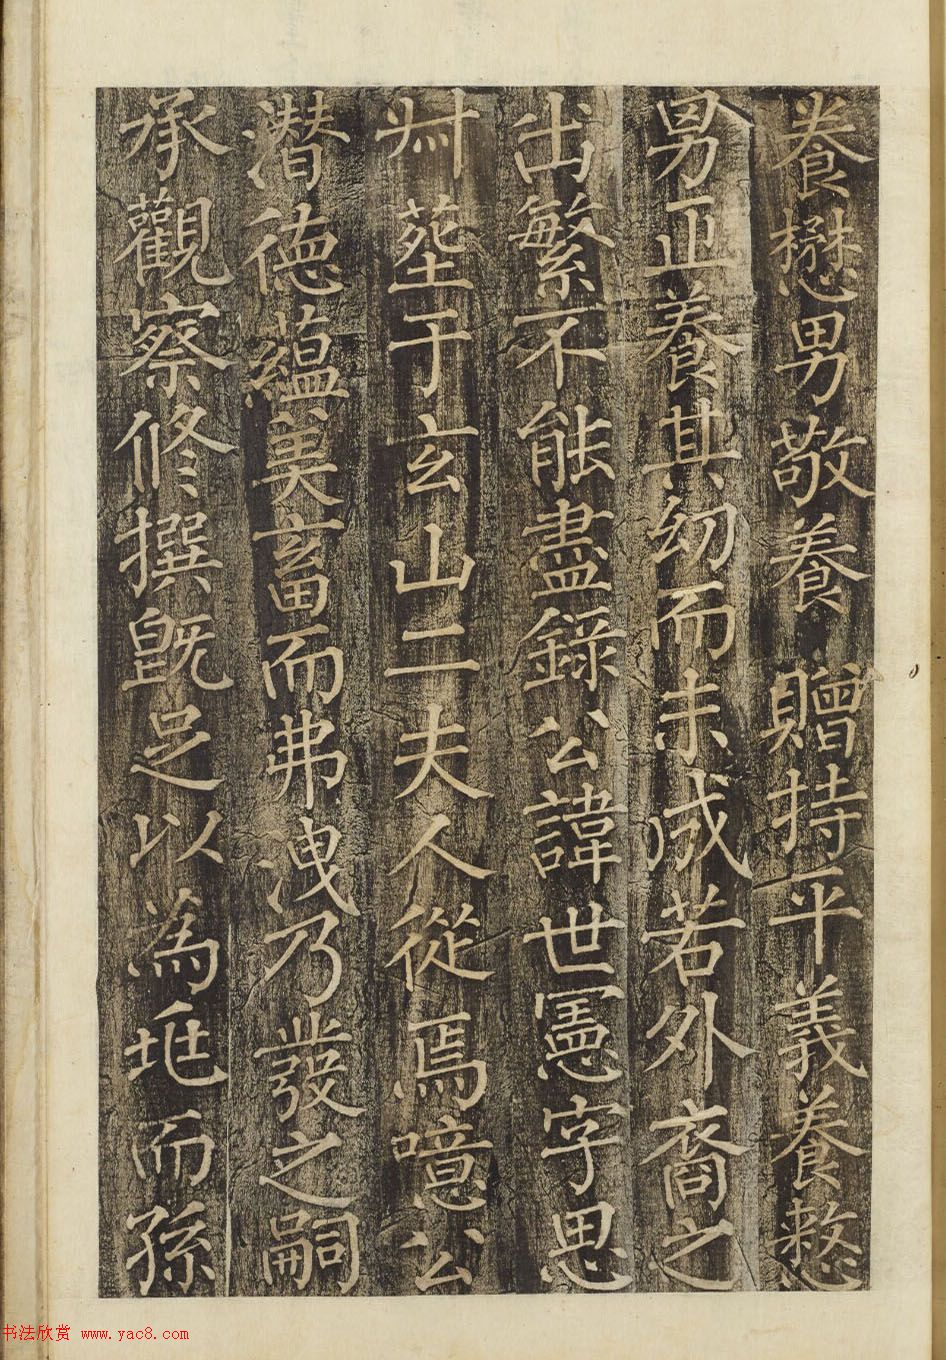 養懋男敬養贈持平義養整
男正養其幼而未成若外裔之
出繁不能盡錄公諱世寬字思
舛葬于玄山二夫人從焉噫公
潛德蘊美畜而弗洩乃發之嗣
承觀察修撰既足以為
而孫
书法欣赏 www.yac8.com